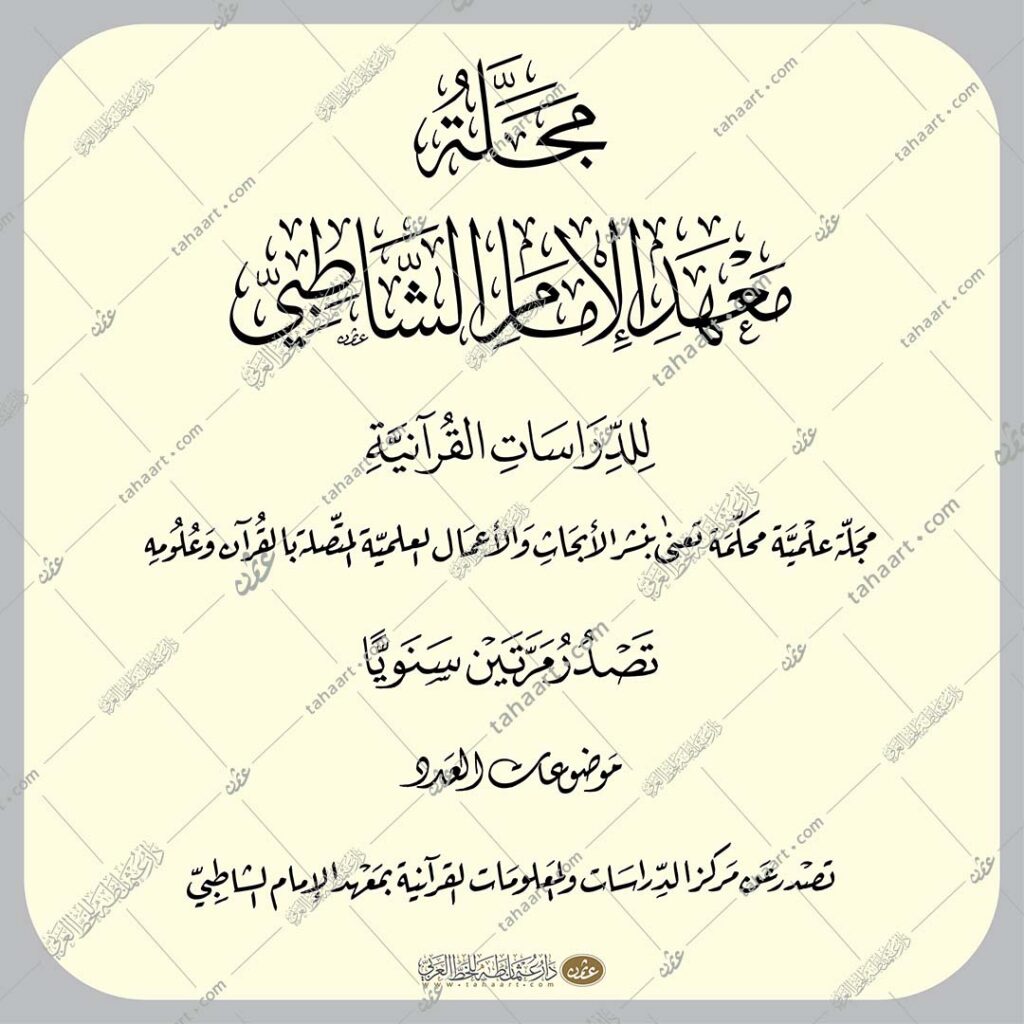 مَجَلَّةُ
مَعْهَدِ الإِمَامِ الشَّاطِبِيِّ
لِلدِّرَاسَاتِ القُرْآنِيَّةِ
مجَلّة علْميَّة محكَّمَة تعنىٰ بنشر الأبحَاثِ وَالأعمَال العلميّة المتَّصلة بالقُرآن وَعُلُومِهِ
تَصْدُرُ مَرَّتَيْن سَنَوِيًّا
مَوضوعات العَدد
تصْدر عَن مَركز الدِّراسَات والمعلومَات القرآنية بمَعْهد الإمام الشاطِبيّ
عثمان دار عثمان طه للخط العربي
www.tahaart.com